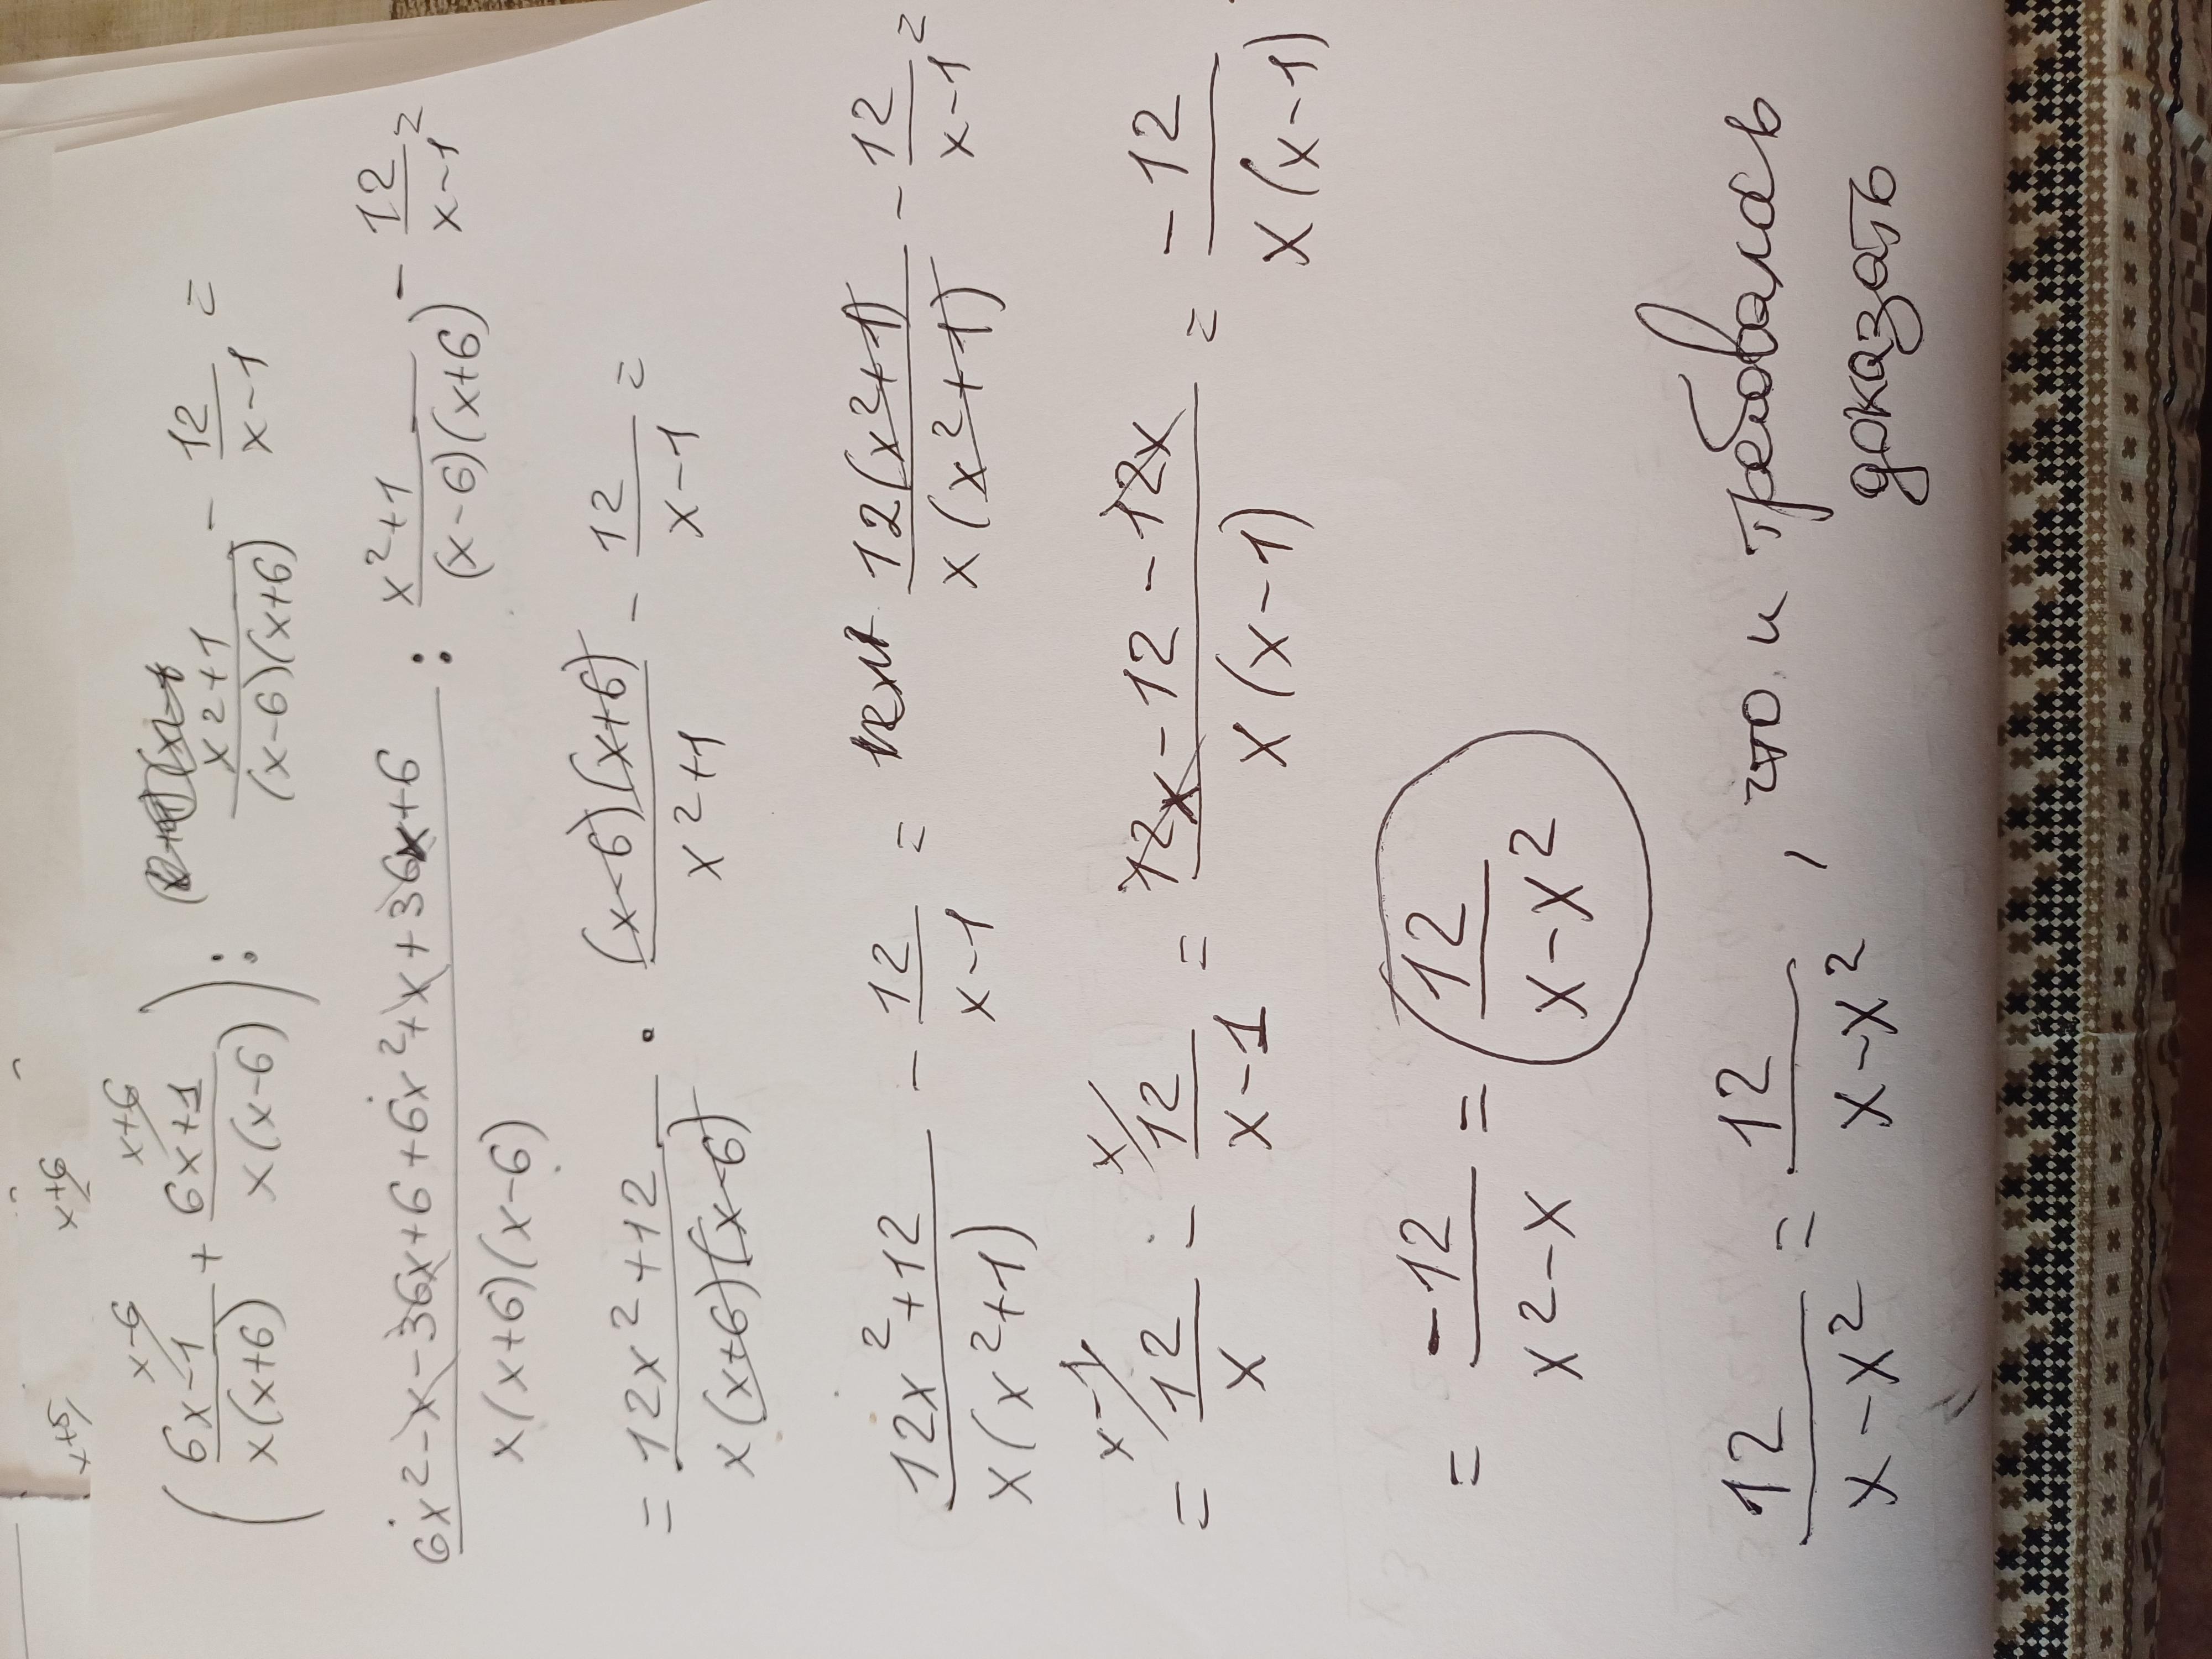 x+5/ x+6
x-6/ x+6/
((6x-1)/(x(x+6)) + (6x+1)/(x(x-6))) : (x²+1)/((x-6)(x+6)) - 12/(x-1) =
(6x²-x-36x+6+6x²+x+36x+6)/(x(x+6)(x-6)) : (x²+1)/((x-6)(x+6)) - 12/(x-1) =
= (12x²+12)/(x(x+6)(x-6)) · ((x-6)(x+6))/(x²+1) - 12/(x-1) =
(12x²+12)/(x(x²+1)) - 12/(x-1) = (12(x²+1))/(x(x²+1)) - 12/(x-1) =
= x-1/ 12/x - x/ 12/(x-1) = (12x-12-12x)/(x(x-1)) = -12/(x(x-1))
= -12/(x²-x) = 12/(x-x²)
12/(x-x²) = 12/(x-x²) , что и требовалось
доказать